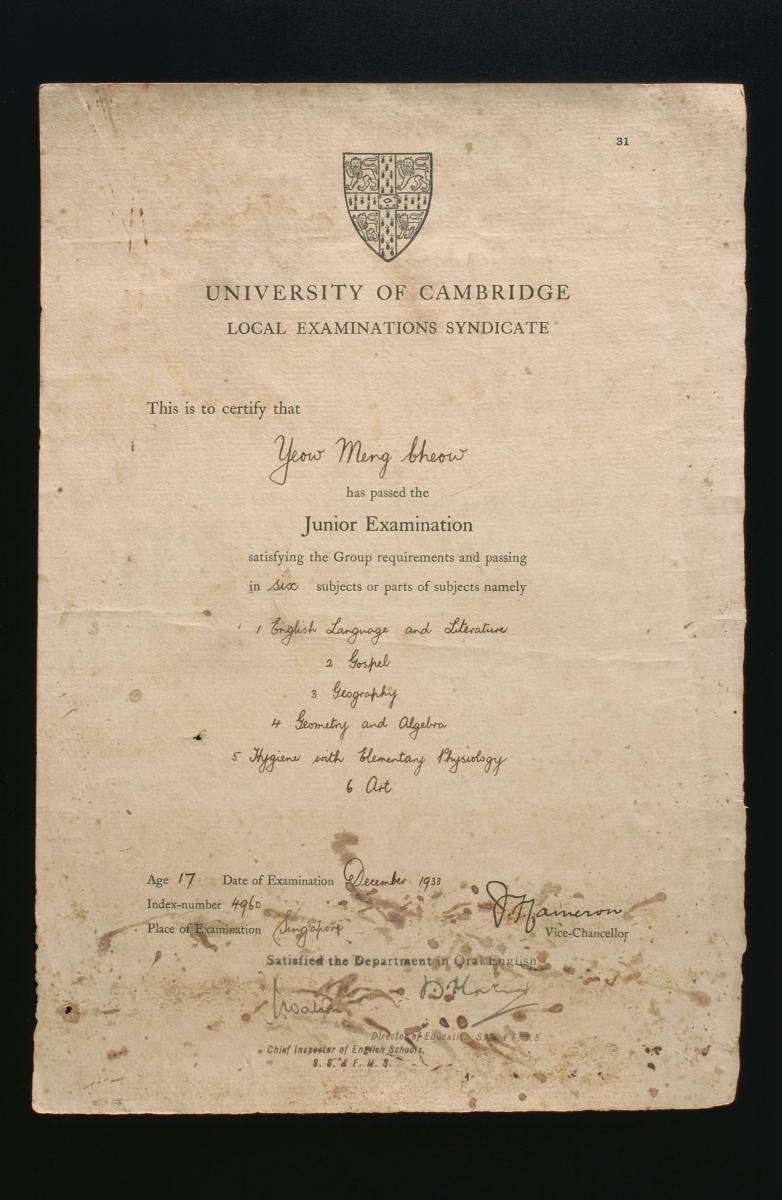 31
UNIVERSITY OF CAMBRIDGE
LOCAL EXAMINATIONS SYNDICATE
This is to certify that
Yeow Meng Cheow
has passed the
Junior Examination
satisfying the Group requirements and passing
in six subjects or parts of subjects namely
1 English Language and Literature
2 Gospel
3 Geography
4 Geometry and Algebra
5 Hygiene with Elementary Physiology
6 Art
Age 17 Date of Examination December 1933
Index-number 4960
Place of Examination Singapore
J. F. Cameron
Vice-Chancellor
Satisfied the Department in Oral English
Watson
Director of Education S.S. & F.M.S.
Chief Inspector of English Schools,
S. S. & F. M. S.